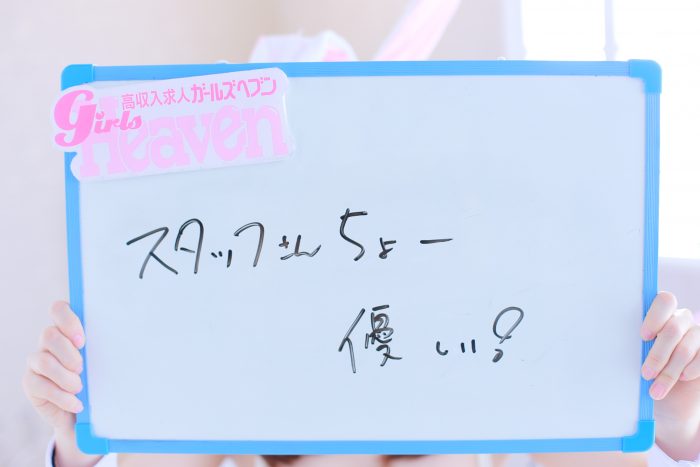 高収入求人ガールズヘブン
Girls
Heaven
スタッフさんちょー
優しい?